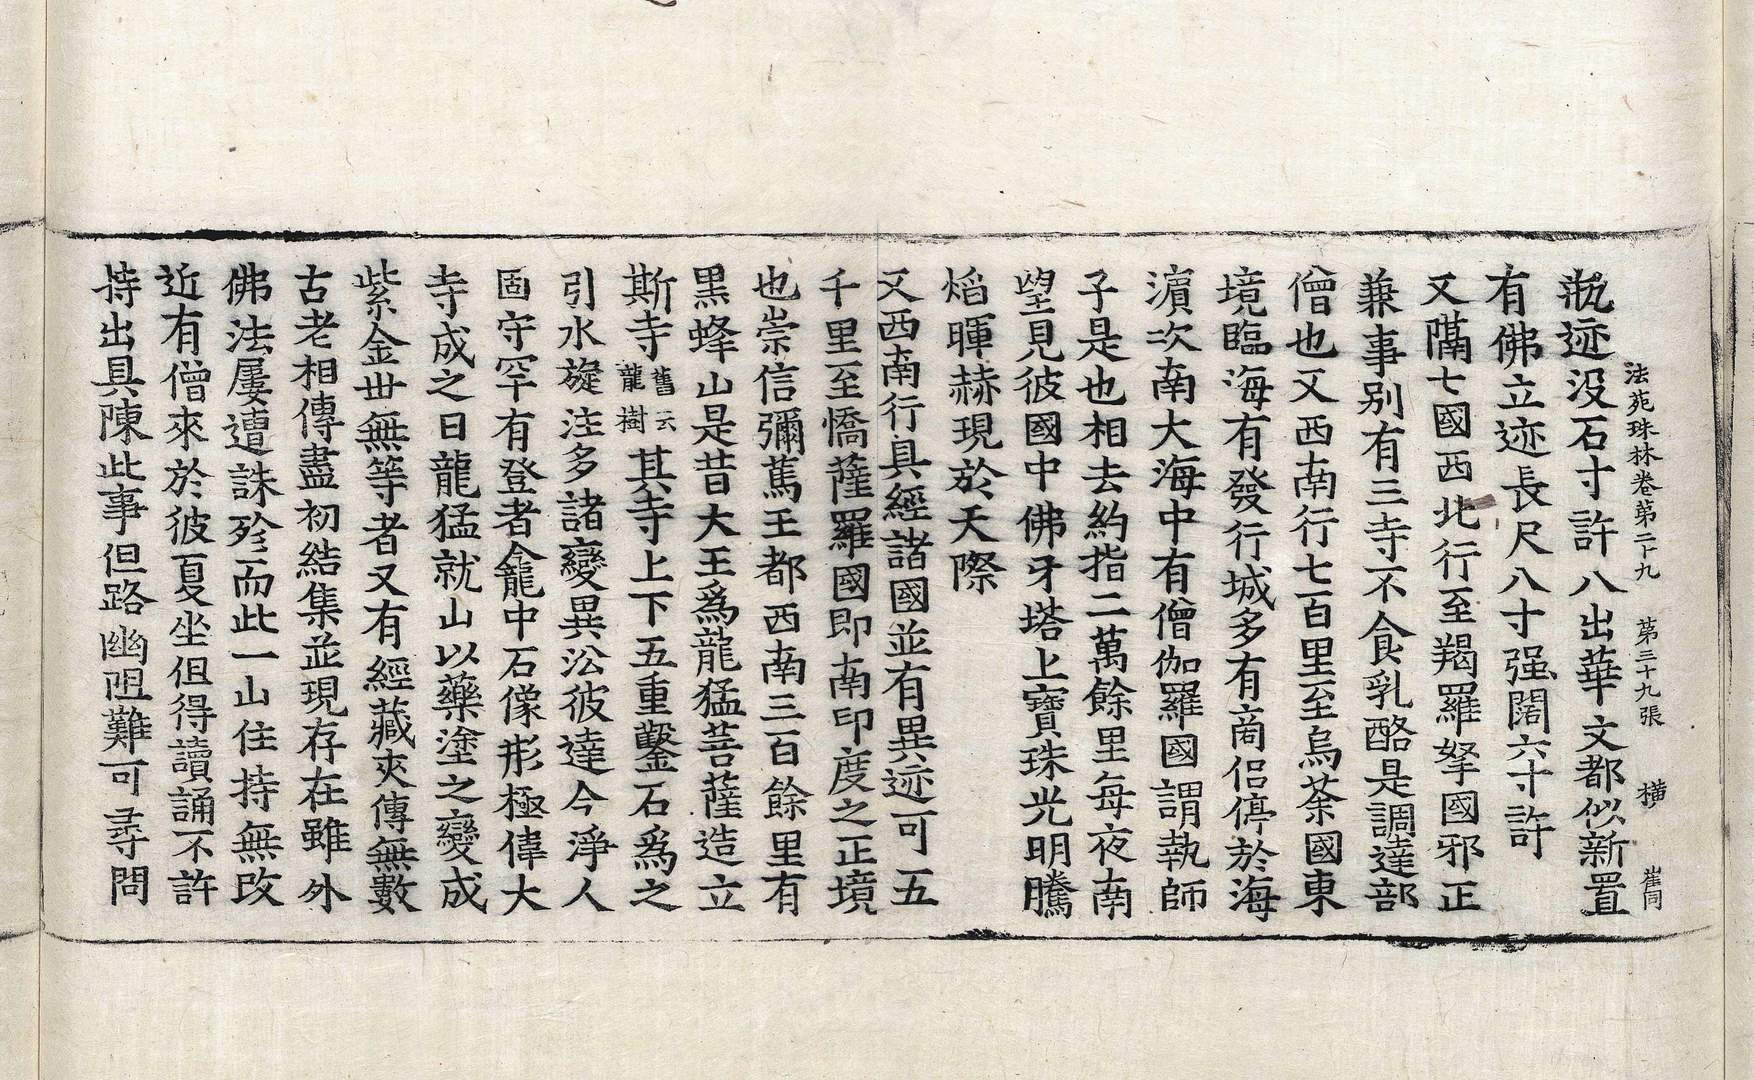 法苑珠林卷第二十九 第三十九張 横 崔同
瓨迹没石寸許八出華文都似新置
有佛立迹長尺八寸强闊六寸許
又隔七國西北行至羯羅拏國邪正
兼事别有三寺不食乳酪是調達部
僧也又西南行七百里至烏荼國東
境臨海有發行城多有商侣停於海
濵次南大海中有僧伽羅國謂執師
子是也相去約指二萬餘里每夜南
望見彼國中佛牙塔上寶珠光明騰
焰暉赫現於天際
又西南行具經諸國並有異迹可五
千里至憍薩羅國即南印度之正境
也崇信彌篤王都西南三百餘里有
黒蜂山是昔大王爲龍猛菩薩造立
斯寺舊云龍樹其寺上下五重鑿石爲之
引水旋注多諸變異㳂彼達今淨人
固守罕有登者龕中石像形極偉大
寺成之日龍猛就山以藥塗之變成
紫金世無等者又有經藏夾傳無數
古老相傳盡初結集並現存在雖外
佛法屢遭誅殄而此一山住持無改
近有僧來於彼夏坐但得讀誦不許
持出具陳此事但路幽阻難可尋問